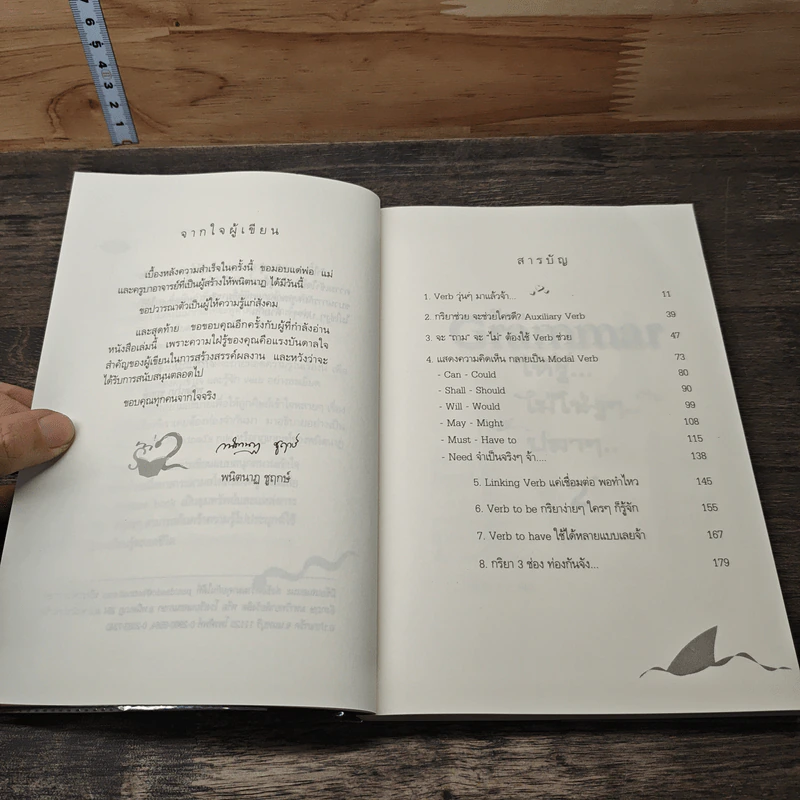 จากใจผู้เขียน
เบื้องหลังความสำเร็จในครั้งนี้ ขอมอบแด่พ่อ แม่
และครูบาอาจารย์ที่เป็นผู้สร้างให้พนิตนาฏ ได้มีวันนี้
ขอปวารณาตัวเป็นผู้ให้ความรู้แก่สังคม
และสุดท้าย ขอขอบคุณอีกครั้งกับผู้ที่กำลังอ่าน
หนังสือเล่มนี้ เพราะความใฝ่รู้ของคุณคือแรงบันดาลใจ
สำคัญของผู้เขียนในการสร้างสรรค์ผลงาน และหวังว่าจะ
ได้รับการสนับสนุนตลอดไป
ขอบคุณทุกคนจากใจจริง
พนิตนาฏ ชูฤกษ์
พนิตนาฏ ชูฤกษ์
สารบัญ
1. Verb วุ่นๆ มาแล้วจ้า... 11
2. กริยาช่วย จะช่วยใครดี? Auxiliary Verb 39
3. จะ "ถาม" จะ "ไม่" ต้องใช้ Verb ช่วย 47
4. แสดงความคิดเห็น กลายเป็น Modal Verb 73
- Can - Could 80
- Shall - Should 90
- Will - Would 99
- May - Might 108
- Must - Have to 115
- Need จำเป็นจริงๆ จ้า.... 138
5. Linking Verb แค่เชื่อมต่อ พอทำไหว 145
6. Verb to be กริยาง่ายๆ ใครๆ ก็รู้จัก 155
7. Verb to have ใช้ได้หลายแบบเลยจ้า 167
8. กริยา 3 ช่อง ท่องกันจัง... 179
7
6
5
4
3
2
1